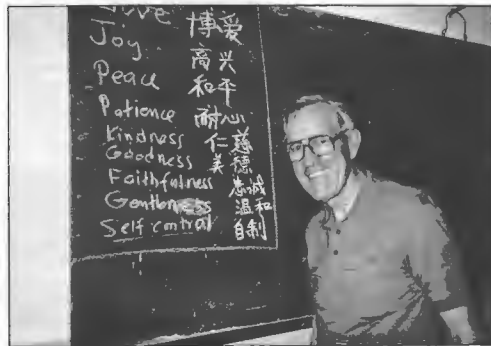 Love 博爱
Joy 高兴
Peace 和平
Patience 耐心
Kindness 仁慈
Goodness 美德
Faithfulness 忠诚
Gentleness 温和
Self control 自制